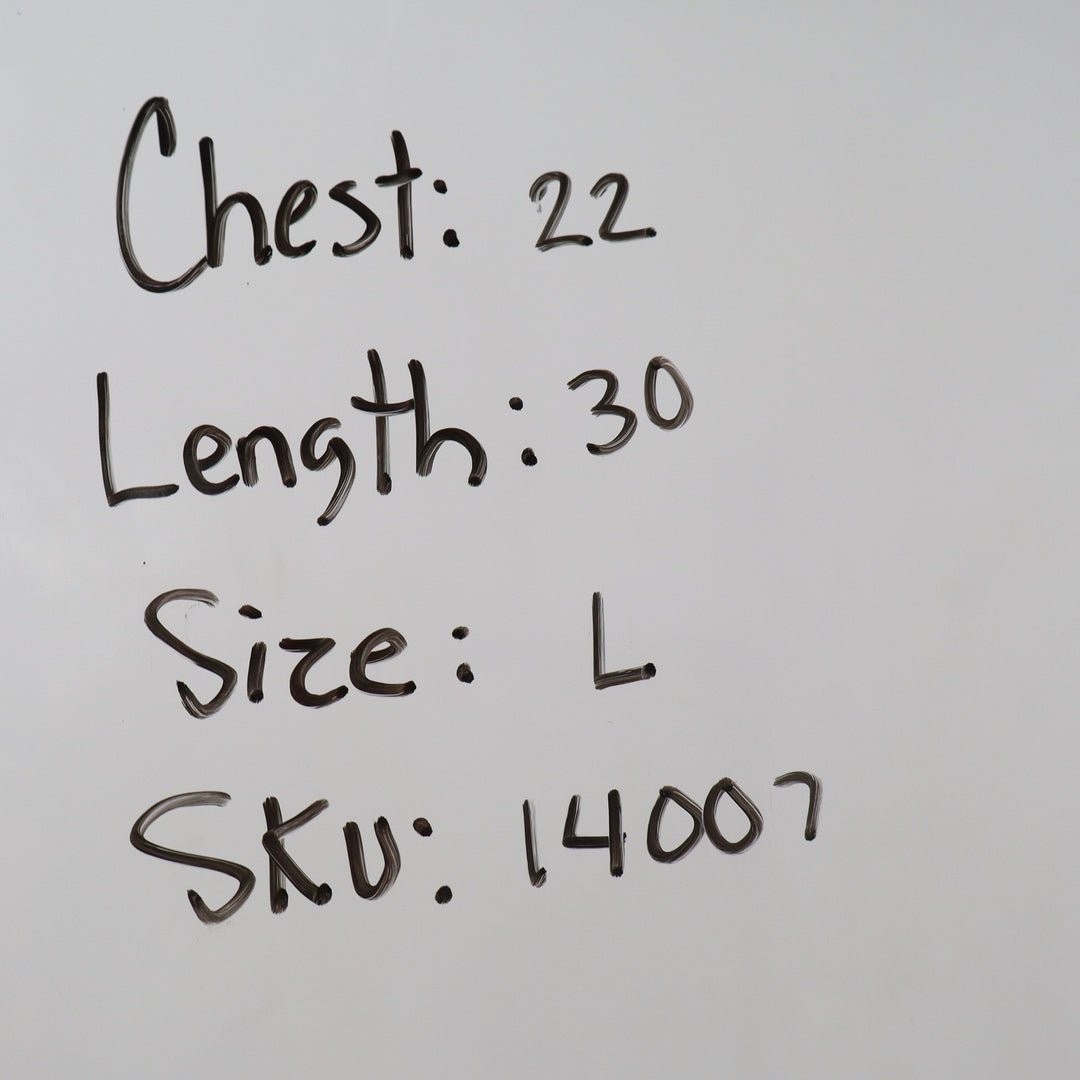 Chest: 22
Length: 30
Size: L
SKU: 14007